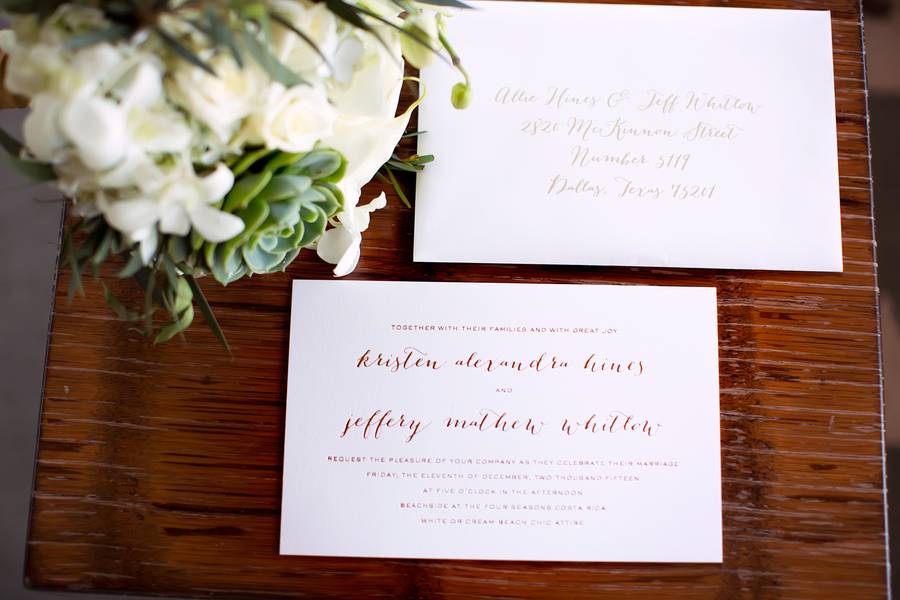 Allie Hines & Jeff Whitlow
2820 McKinnon Street
Number 5119
Dallas, Texas 75201
TOGETHER WITH THEIR FAMILIES AND WITH GREAT JOY
kristen alexandra hines
AND
jeffery mathew whitlow
REQUEST THE PLEASURE OF YOUR COMPANY AS THEY CELEBRATE THEIR MARRIAGE
FRIDAY, THE ELEVENTH OF DECEMBER, TWO THOUSAND FIFTEEN
AT FIVE O'CLOCK IN THE AFTERNOON
BEACHSIDE AT THE FOUR SEASONS COSTA RICA
WHITE OR CREAM BEACH CHIC ATTIRE